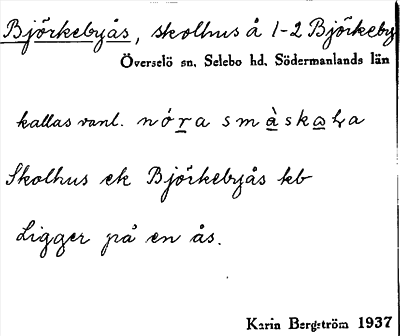 Björkebyås, skolhus å 1-2 Björkeby
Överselö sn. Selebo hd. Södermanlands län
kallas vanl. nóra smàskola
Skolhus ek Björkebyås kb
Ligger på en ås.
Karin Bergström 1937